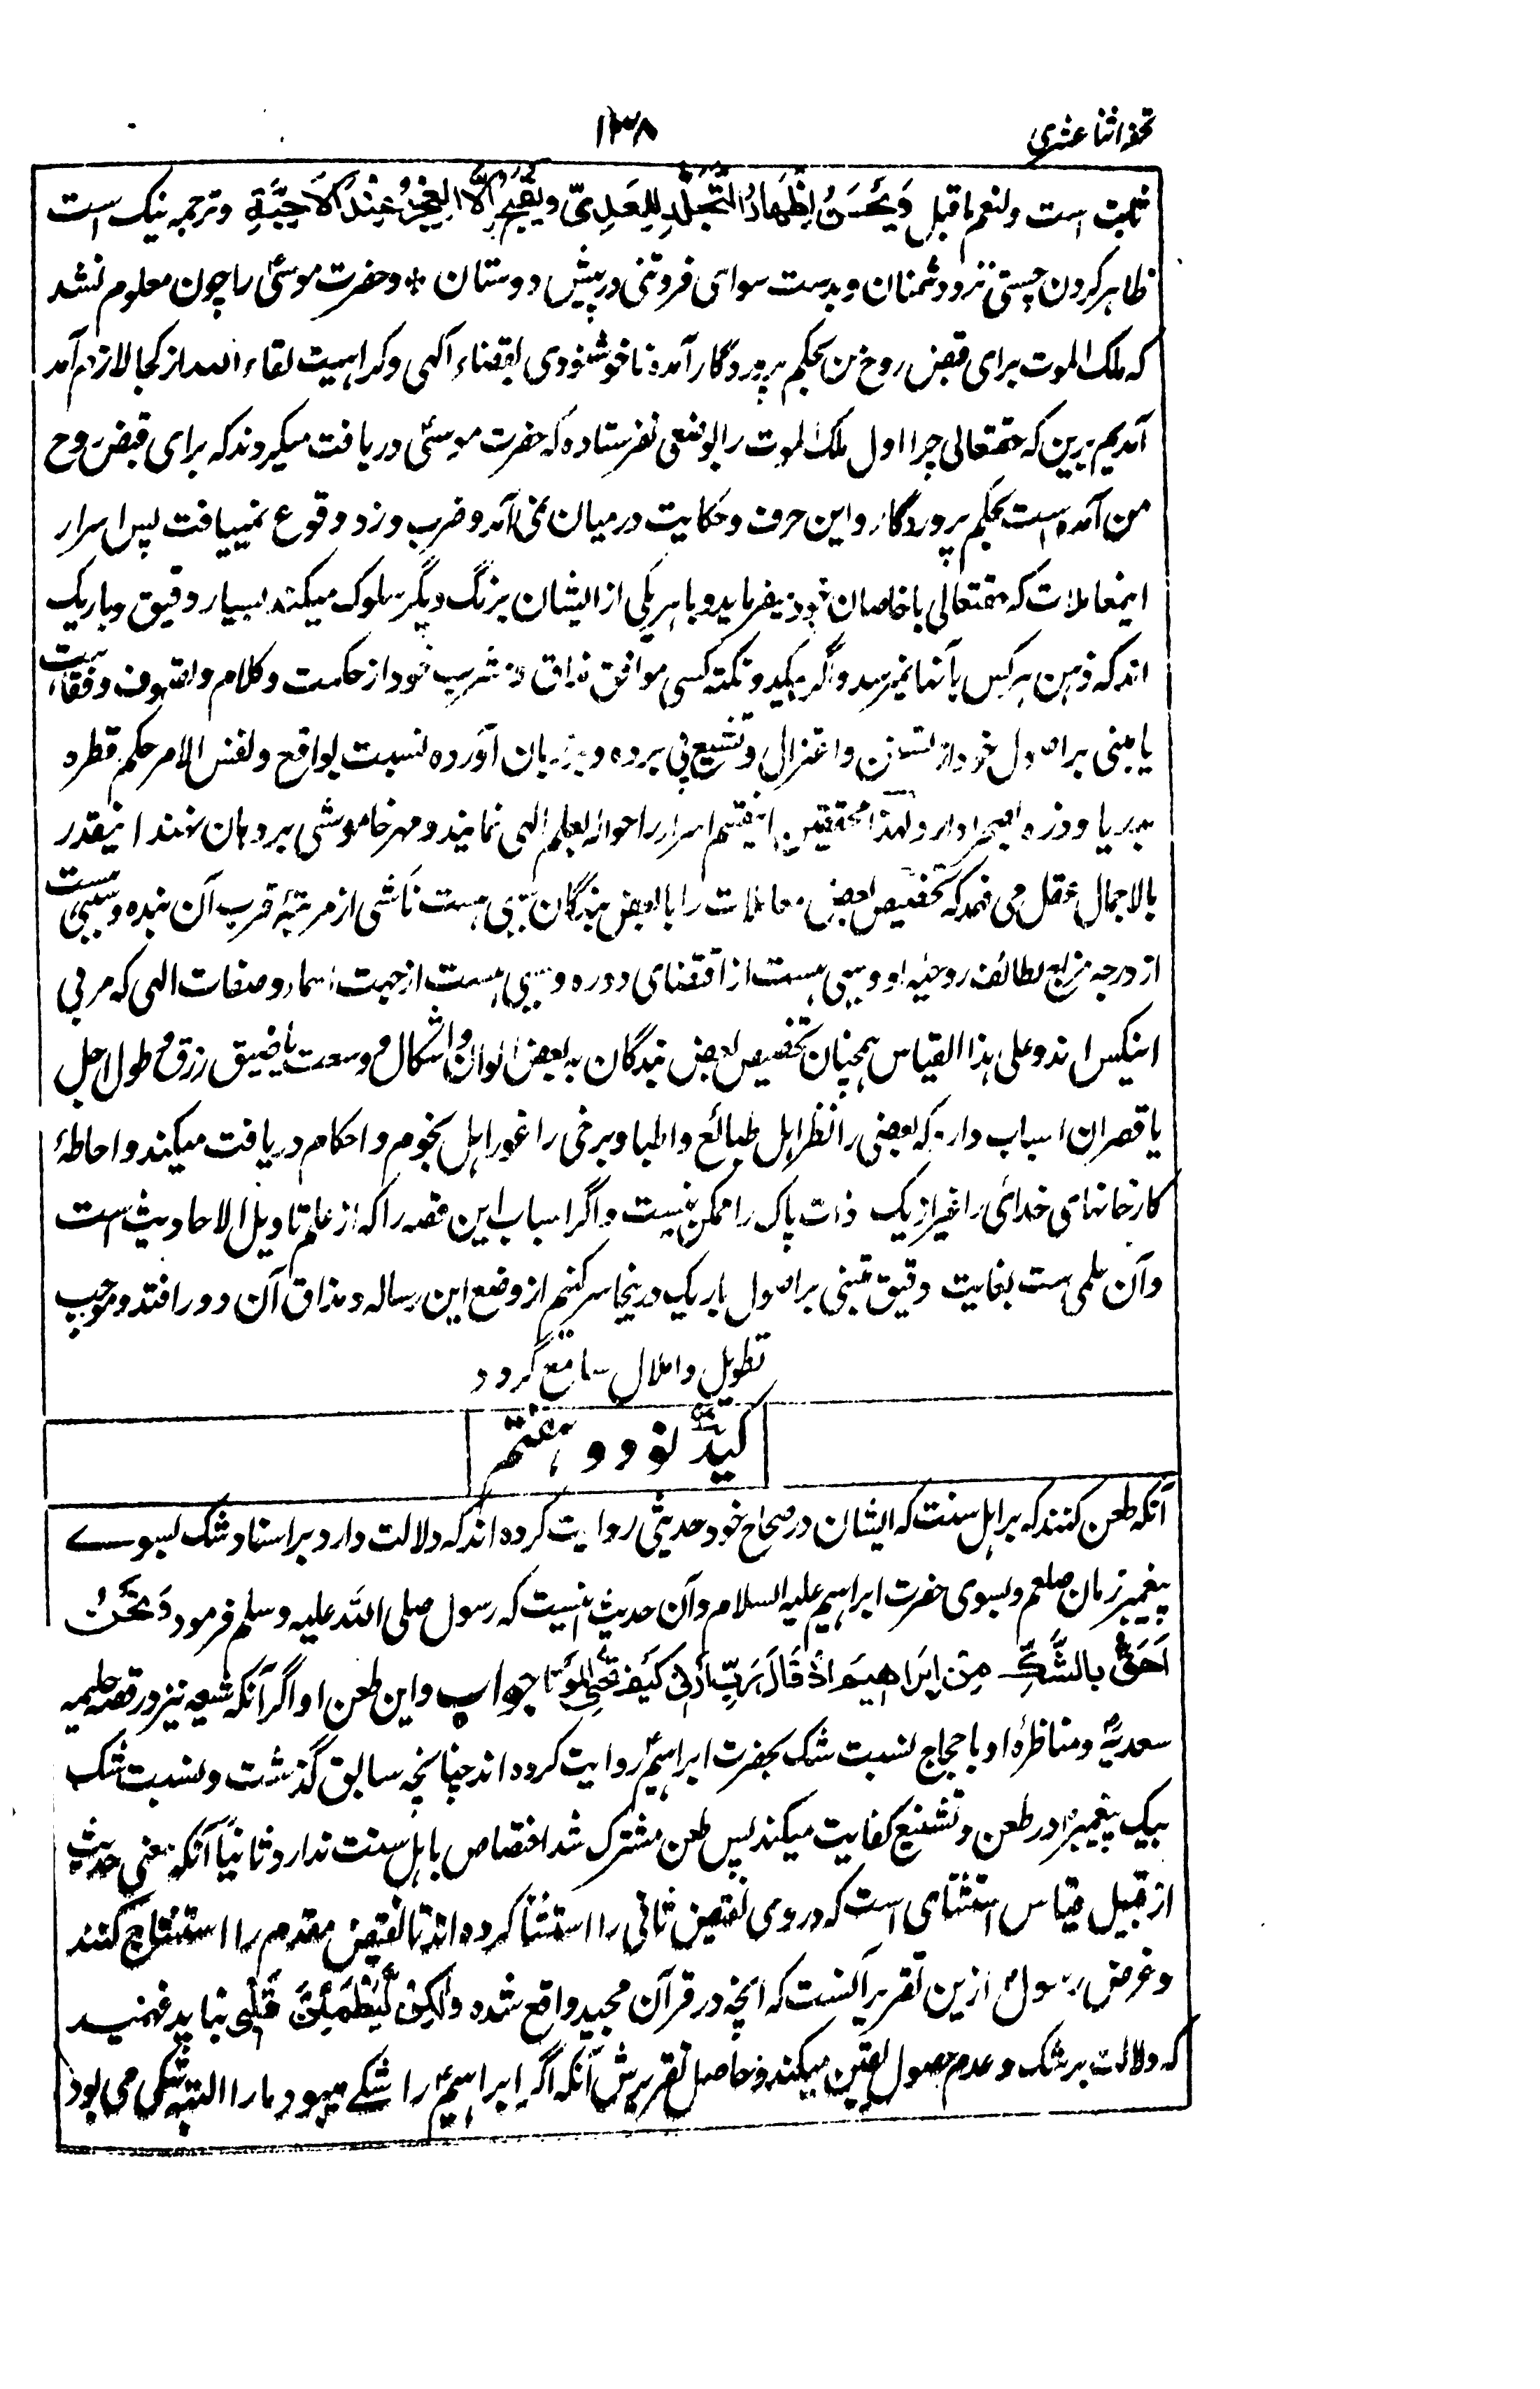 تحفه اثنا عشری
۱۳۸
ثابت است ولنعم ما قبل وَيَحْسَنُ اِظْهَارُ التَّجَلُّدِ لِلْعَدِیّ ويقبح اِلَّا الْعِجْزُ عِنْدَ الْاَحِبَّةِ وترجمه نیک است
ظاهر کردن چستی نزد دشمنان و بدست سوای فروتنی در پیش دوستان * و حضرت موسیٰؑ را چون معلوم نشد
که ملک الموت برای قبض روح من بحکم پروردگار آمده ناخوشنودی بقضاء الٰهی و کراهیت لقاء الله از کجا لازم آمد
آمدیم برین که حقتعالی چرا اول ملک الموت را بوضعی نفرستاده که حضرت موسیٰؑ دریافت میکردند که برای قبض روح
من آمده است بحکم پروردگار و این حرف و حکایت درمیان نمی آمد و ضرب و زد وقوع نمییافت پس اسرار
اینمعاملات که حقتعالی با خاصان خود میفرماید و با هر یکی از ایشان برنگ دیگر سلوک میکند بسیار دقیق و باریک
اند که ذهن هر کس بآنها نمیرسد و اگر یکدو نکته کسی موافق مذاق و مشرب خود از حکمت و کلام و تصوف و فقاهت
یا مبنی بر اصول خود از تسنن و اعتزال و تشیع پی برده و بر زبان آورده نسبت بواقع و نفس الامر حکم قطره
بدریا و ذره بصحرا دارد و لهٰذا محققین اینقسم اسرار را حواله بعلم الٰهی نمایند و مهر خاموشی بر دهان نهند اینقدر
بالاجمال عقل می فهمد که تخصیص بعض معاملات را با بعض بندگان سببی هست ناشی از مرتبهٔ قرب آن بنده و سببی هست
از درجه مزاج لطائف روحیه او و سببی هست از اقتضای دوره و سببی هست از جهت اسماء و صفات الهی که مربی
اینکس اند و علی هذا القیاس همچنان تخصیص بعض بندگان به بعض الوان و اشکال و وسعت یا ضیق رزق و طول اجل
یا قصر آن اسباب دارد که بعضی را نظر اهل طبائع و اطبا و برخی را غور اهل نجوم و احکام دریافت میکند و احاطهٔ
کارخانهای خدائی را غیر از یک ذات پاک را ممکن نیست و اگر اسباب این قصه را که از علم تاویل الاحادیث است
و آن علمی ست بغایت دقیق مبنی بر اصول باریک درینجا سر کنیم از وضع این رساله و مذاق آن دور افتد و موجب
تطویل و املال سامع گردد
کید نود و هفتم
آنکه طعن کنند که بر اهل سنت که ایشان در صحاح خود حدیثی روایت کرده اند که دلالت دارد بر اسناد شک بسوے
پیغمبر زمان صلعم و بسوی حضرت ابراهیم علیه السلام و آن حدیث اینست که رسول صلی الله علیه وسلم فرمود وَنَحْنُ
اَحَقُّ بِالشَّكِّ مِنْ اِبْرَاهِيْمَ اِذْ قَالَ رَبِّ اَرِنِي كَيْفَ تُحْيِ الْمَوْتَى جواب و این طعن او اگر آنکه شیعه نیز در قصه حلیمه
سعدیه و مناظرهٔ او با حجاج نسبت شک بحضرت ابراهیمؑ روایت کرده اند چنانچه سابق گذشت و نسبت شک
بیک پیغمبر در طعن و تشنیع کفایت میکند پس طعن مشترک شد اختصاص باهل سنت ندارد ثانیاً آنکه معنی حدیث
از قبیل قیاس استثنای است که در وی نقیض ثانی را استثنا کرده اند تا نقیض مقدم را استنتاج کنند
و غرض رسولؐ ازین تقریر آنست که انچه در قرآن مجید واقع شده وَلٰكِنْ لِيَطْمَئِنَّ قَلْبِى نباید فهمید
که دلالت بر شک و عدم حصول یقین میکند و حاصل تقریرش آنکه اگر ابراهیمؑ را شکے میبود ما را البته شکی می بود